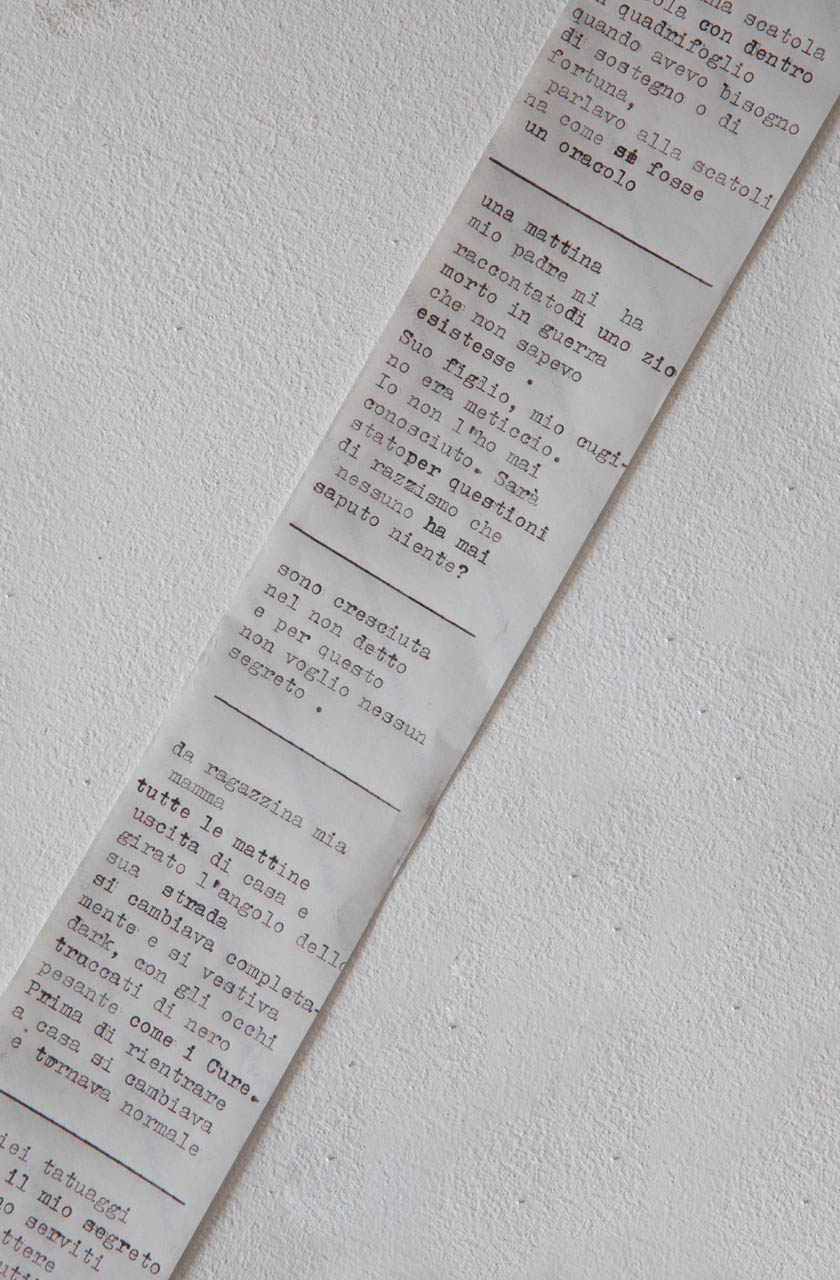 una scatola
con dentro
quadrifoglio
quando avevo bisogno
di sostegno o di
fortuna,
parlavo alla scatoli
na come si fosse
un oracolo
una mattina
mio padre mi ha
raccontatodi uno zio
morto in guerra
che non sapevo
esistesse .
Suo figlio, mio cugi-
no era meticcio.
Io non l'ho mai
conosciuto. Sarà
statoper questioni
di razzismo che
nessuno ha mai
saputo niente?
sono cresciuta
nel non detto
e per questo
non voglio nessun
segreto .
da ragazzina mia
mamma
tutte le mattine
uscita di casa e
girato l'angolo dello
sua strada
si cambiava completa-
mente e si vestiva
dark, con gli occhi
truccati di nero
pesante come i Cure.
Prima di rientrare
a casa si cambiava
e tornava normale
tatuaggi
il mio segreto
serviti